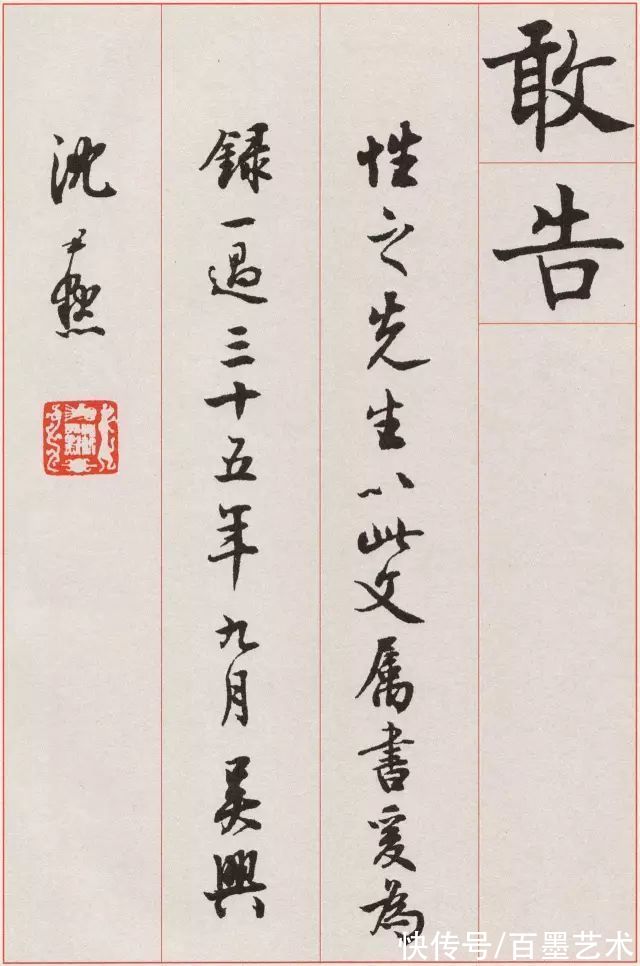 敢告
性之先生以此文属書爰為
録一過三十五年九月吳興
沈尹默
快传号/百墨艺术